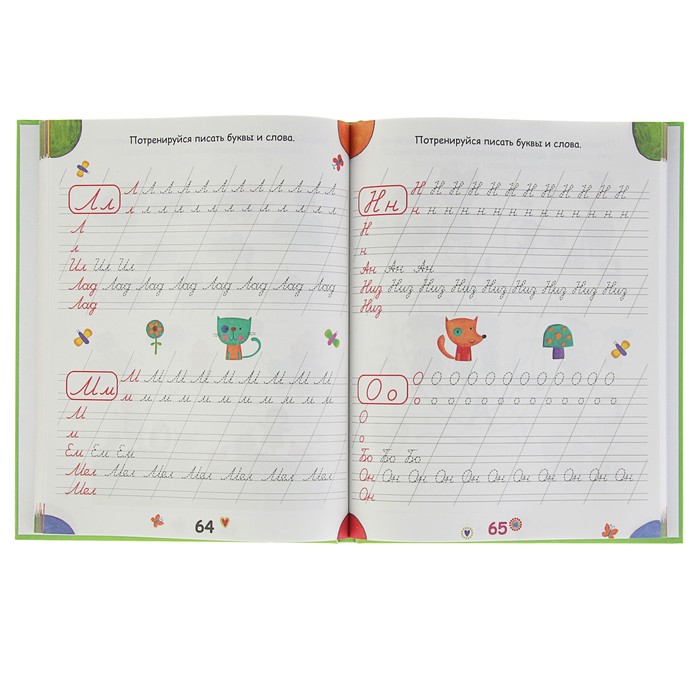 Потренируйся писать буквы и слова.
Лл Л Л Л Л Л Л Л Л Л Л Л Л
л л л л л л л л л л л л
Л
л
Ил Ил Ил
Лад Лад Лад Лад Лад Лад Лад Лад
Лад
Мм М М М М М М М М М М
м м м м м м м м м м
М
м
Ем Ем Ем
Мел Мел Мел Мел Мел Мел Мел
Мел
64
Потренируйся писать буквы и слова.
Нн Н Н Н Н Н Н Н Н Н Н Н
н н н н н н н н н н н
Н
н
Ан Ан Ан
Низ Низ Низ Низ Низ Низ Низ Низ Низ
Низ
Оо О О О О О О О О О О О О
о о о о о о о о о о о о
О
о
Бо Бо Бо
Он Он Он Он Он Он Он Он Он Он
Он
65